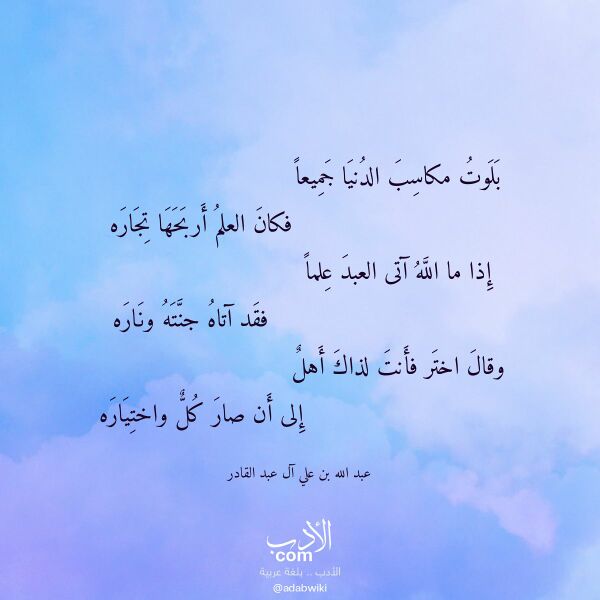 بَلَوتُ مكاسِبَ الدُنيَا جَمِيعاً
فكانَ العلمُ أَربَحَهَا تِجَارَه
إِذا ما اللَّهُ آتى العبدَ عِلماً
فقَد آتاهُ جنَّتَهُ ونَارَه
وقالَ اختَر فأَنتَ لذاكَ أَهلٌ
إِلى أَن صارَ كُلٌّ واختِيَارَه
عبد الله بن علي آل عبد القادر
الأدب
com
الأدب .. بلغة عربية
@adabwiki